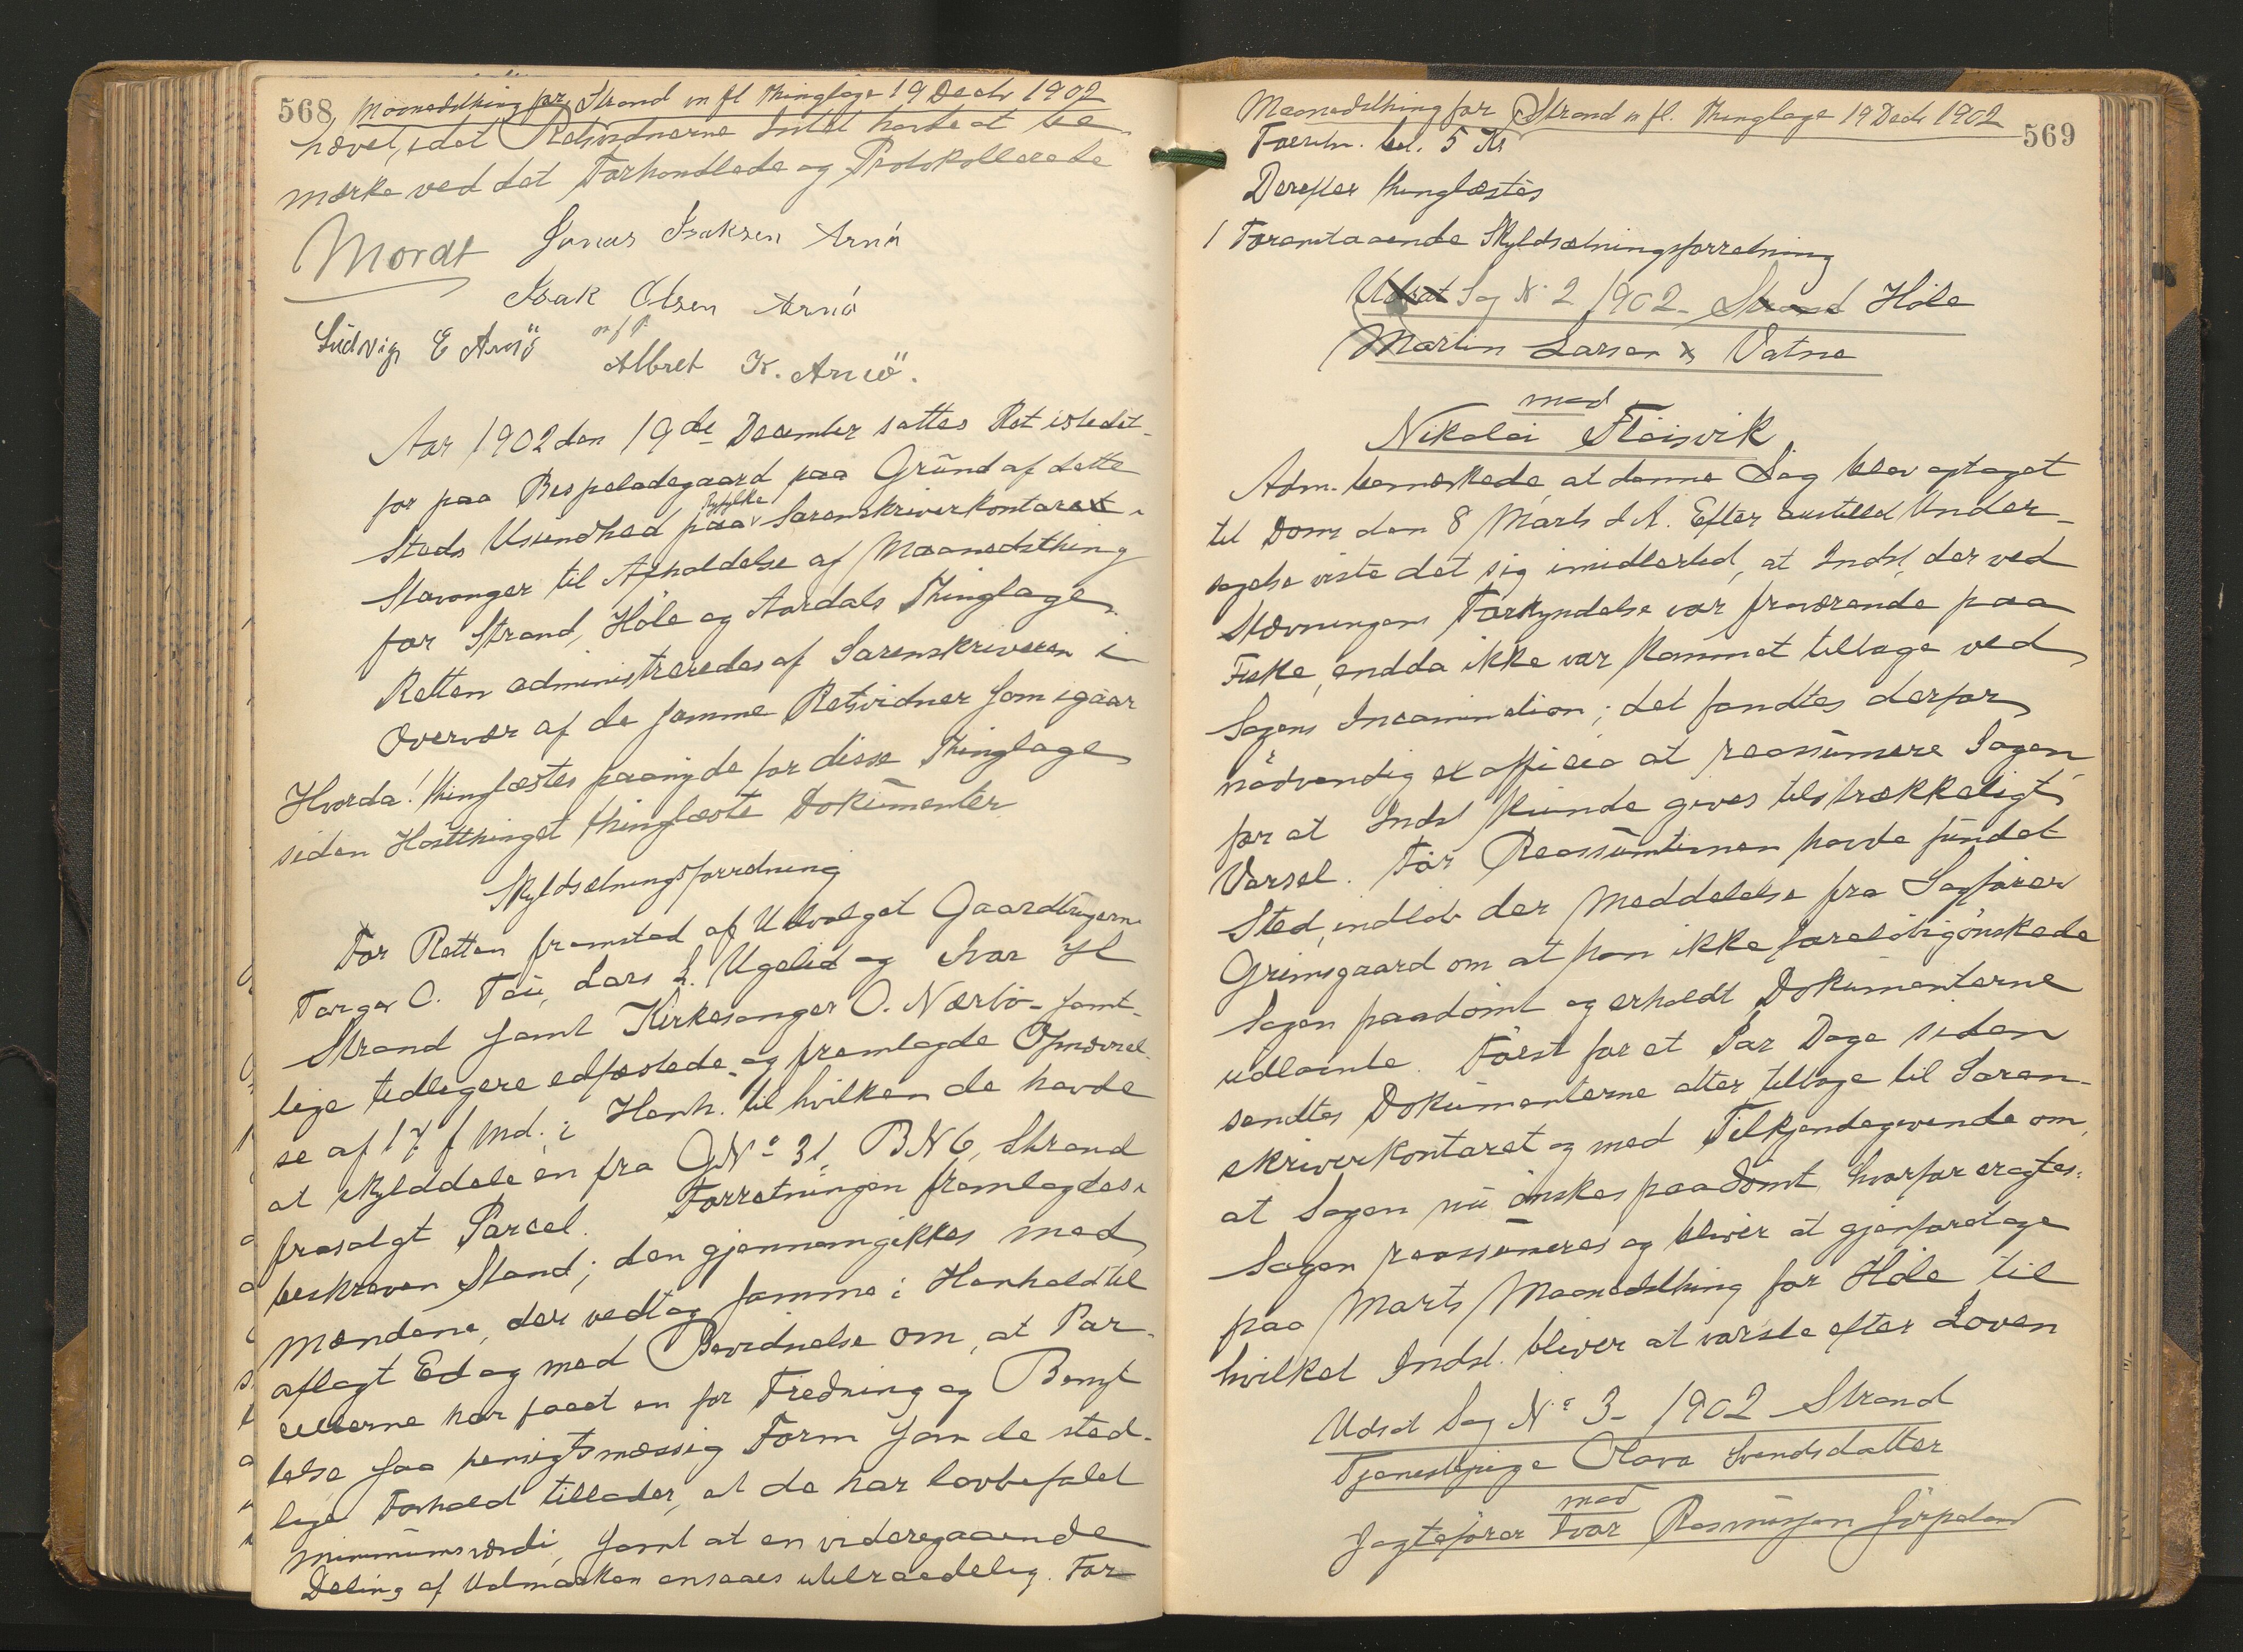 568 Maanedsthing for Strand m fl Thinglage 19 Decbr 1902
hævet, idet Retsvidnerne Intet havde at be-
mærke ved det Forhandlede og Protokollerede
Mordt Jonas Isaksen Arnö
Isak Olsen Arnö
Ludvig E Arnö m f P
Albret K. Arnö.
Aar 1902 den 19de December sattes Ret istedet-
for paa Bespeladegaard paa Grund af dette
Steds Usundhed paa Ryfylke Sorenskriverkontoret i
Stavanger til Afholdelse af Maanedsthing
for Strand, Höle og Aardals Thinglage.
Retten administreredes af Sorenskriveren i
Overvær af de samme Retsvidner som igaar
Hvorda! Thinglæstes paany de for disse Thinglage
siden Hostthinget thinglæste Dokumenter
Skyldsætningsforretning
For Retten fremstod af Udvalget Gaardbrugerne
Torger O. Tau, Lars L. Ugelid og Ivar H
Strand samt Kirkesanger O. Nærbö - samt-
lige tidligere edfæstede - og fremlagde Opnævnel-
se af 17 f Md. i Henh. til hvilken de havde
at skylddele en fra G No 31, B N 6, Strand
frasolgt Parcel. Forretningen fremlagdes i
beskreven Stand; den gjennemgikkes med
Mændene, der vedtog samme i Henhold til
aflagt Ed og med Bevidnelse om, at Par-
cellerne har faaet en for Fredning og Benyt
telse saa hensigtsmæssig Form som de sted-
lige Forhold tillader, at de har lovbefalet
minimumsværdi, samt at en videregaaende
Deling af Udmarken ansaaes utilraadelig. For
Maanedsthing for Strand m fl. Thinglage 19 Decbr 1902 569
Forretn. bet. 5 Kr
Derefter thinglæstes
1 Foranstaaende Skyldsætningsforretning
Udsat Sag No 2 1902 - Strand Höle
Martin Larsen Vatne
med
Nikolai Fløisvik
Adm. bemærkede, at denne Sag blev optaget
til Doms den 8 Marts d A. Efter anstilled Under-
sögelse viste det sig imidlertid, at Indst, der ved
Stævningens Forkyndelse var fraværende paa
Fiske, endda ikke var kommet tilbage ved
Sagens Incamination; det fandtes derfor
nödvendig ex officio at reassumere Sagen
for at Indst kunde gives tilstrækkeligt
Varsel. För Reassumtionen havde fundet
Sted, indlöb der Meddelelse fra Sagförer
Grimsgaard om at han ikke forelöbig önskede
Sagen paadömt og erholdt Dokumenterne
udlaante. Först for et Par Dage siden
sendtes Dokumenterne atter tilbage til Soren-
skriverkontoret og med Tilkjendegivende om,
at Sagen nu önskes paadömt, hvorfor eragtes:
Sagen reassumeres og bliver at gjenforetage
paa Marts Maanedsthing for Höle til
hvilket Indst. bliver at varsle efter Loven
Udsat Sag No 3 - 1902 Strand
Tjenestepige Olava Svendsdatter
med
Jagtefører Ivar Rasmussen Jörpeland